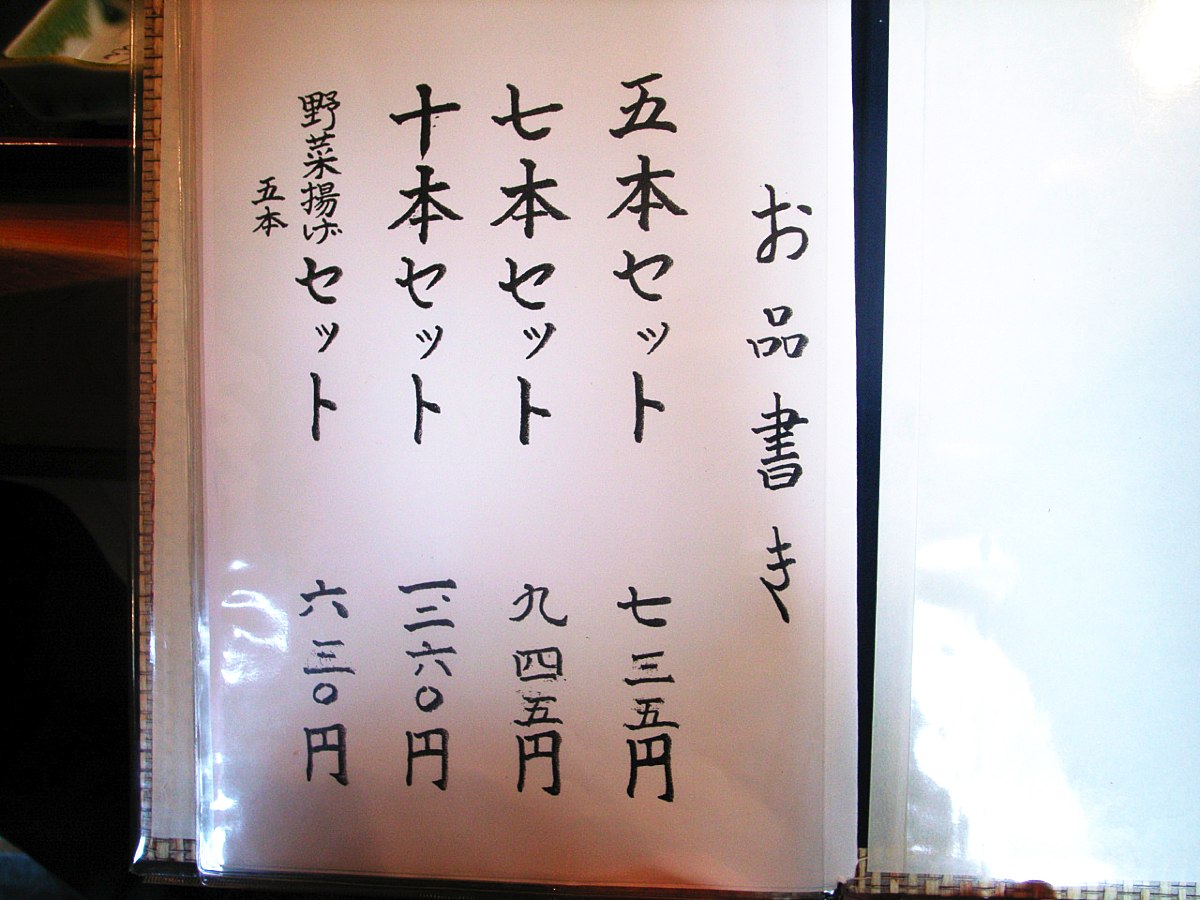 お品書き
五本セット 七三五円
七本セット 九四五円
十本セット 一、二六〇円
野菜揚げセット 六三〇円
五本